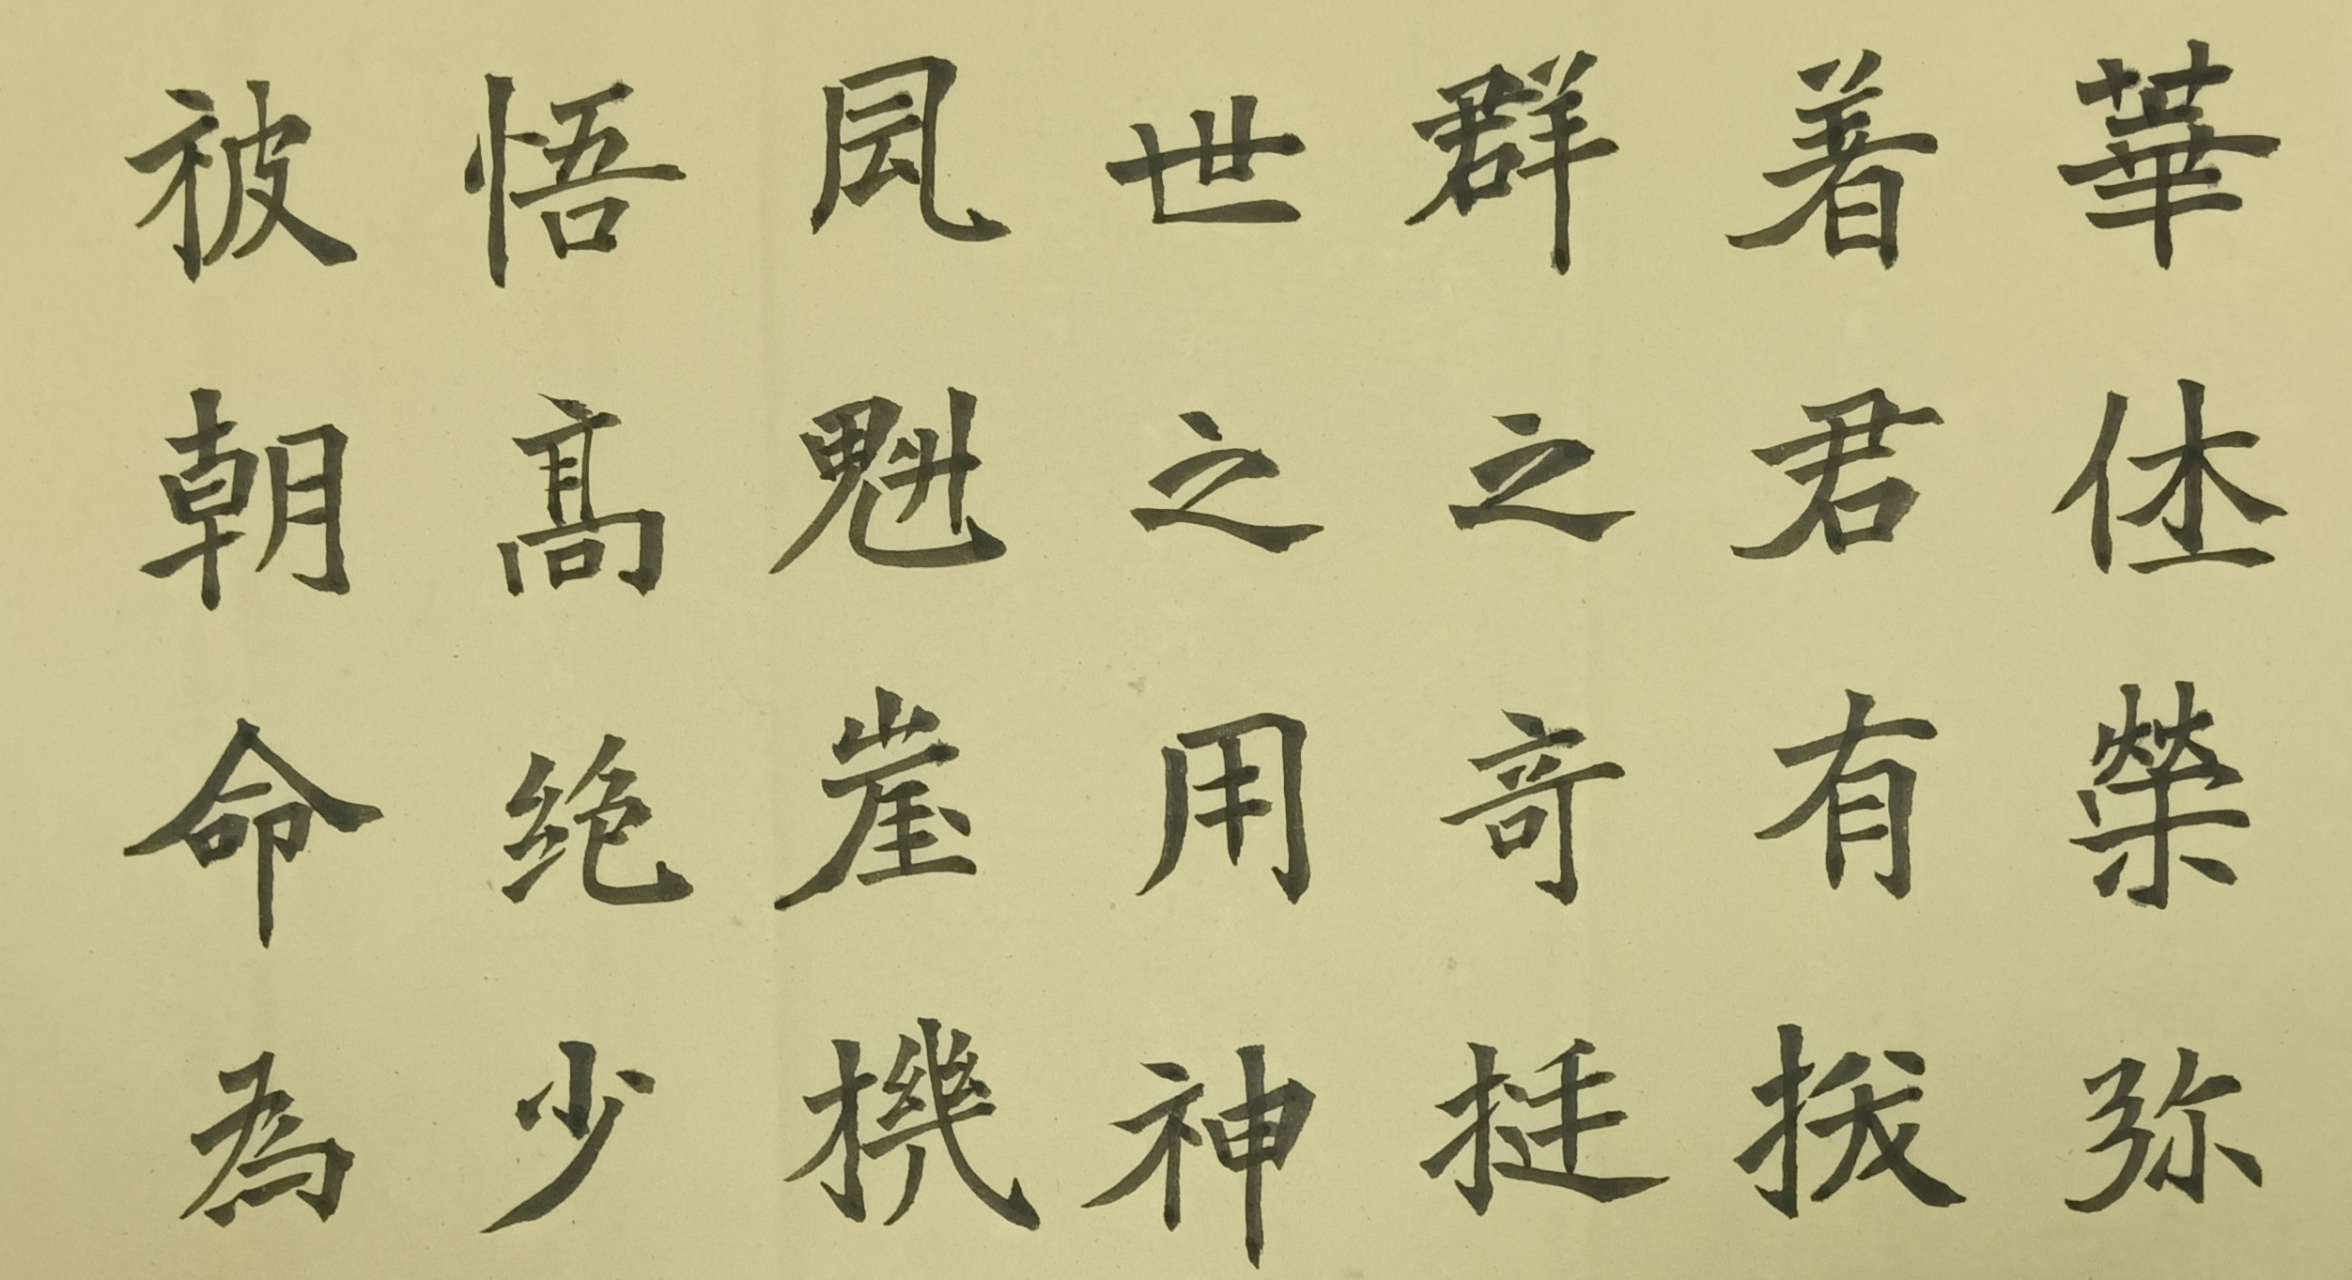 華休榮弥
着君有拔
群之奇挺
世之用神
風魁崖機
悟髙绝少
被朝命為